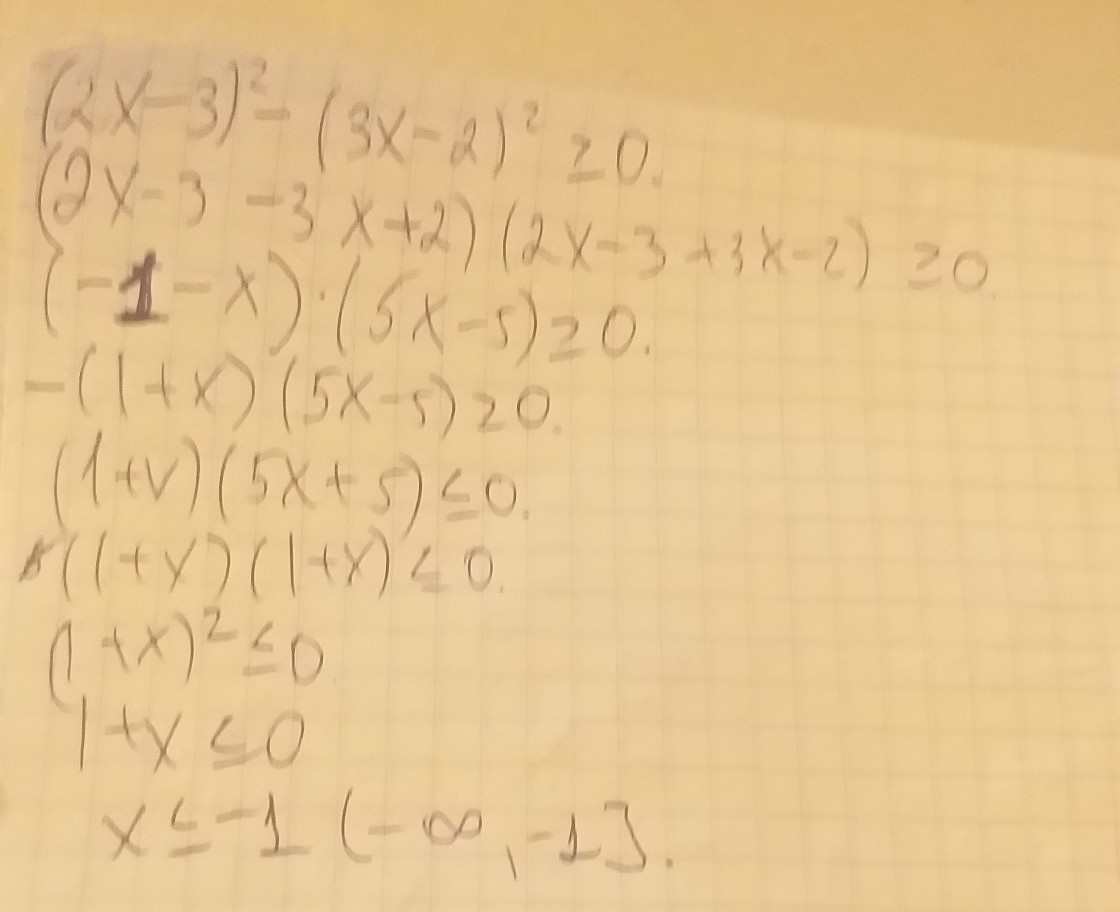 (2x-3)²-(3x-2)² ≥0.
(2x-3-3x+2)(2x-3+3x-2) ≥0.
(-1-x)·(5x-5)≥0.
-(1+x)(5x-5)≥0.
(1+x)(5x+5)≤0.
((1+x)(1+x)≤0.
(1+x)²≤0
1+x≤0
x≤-1 (-∞,-1].